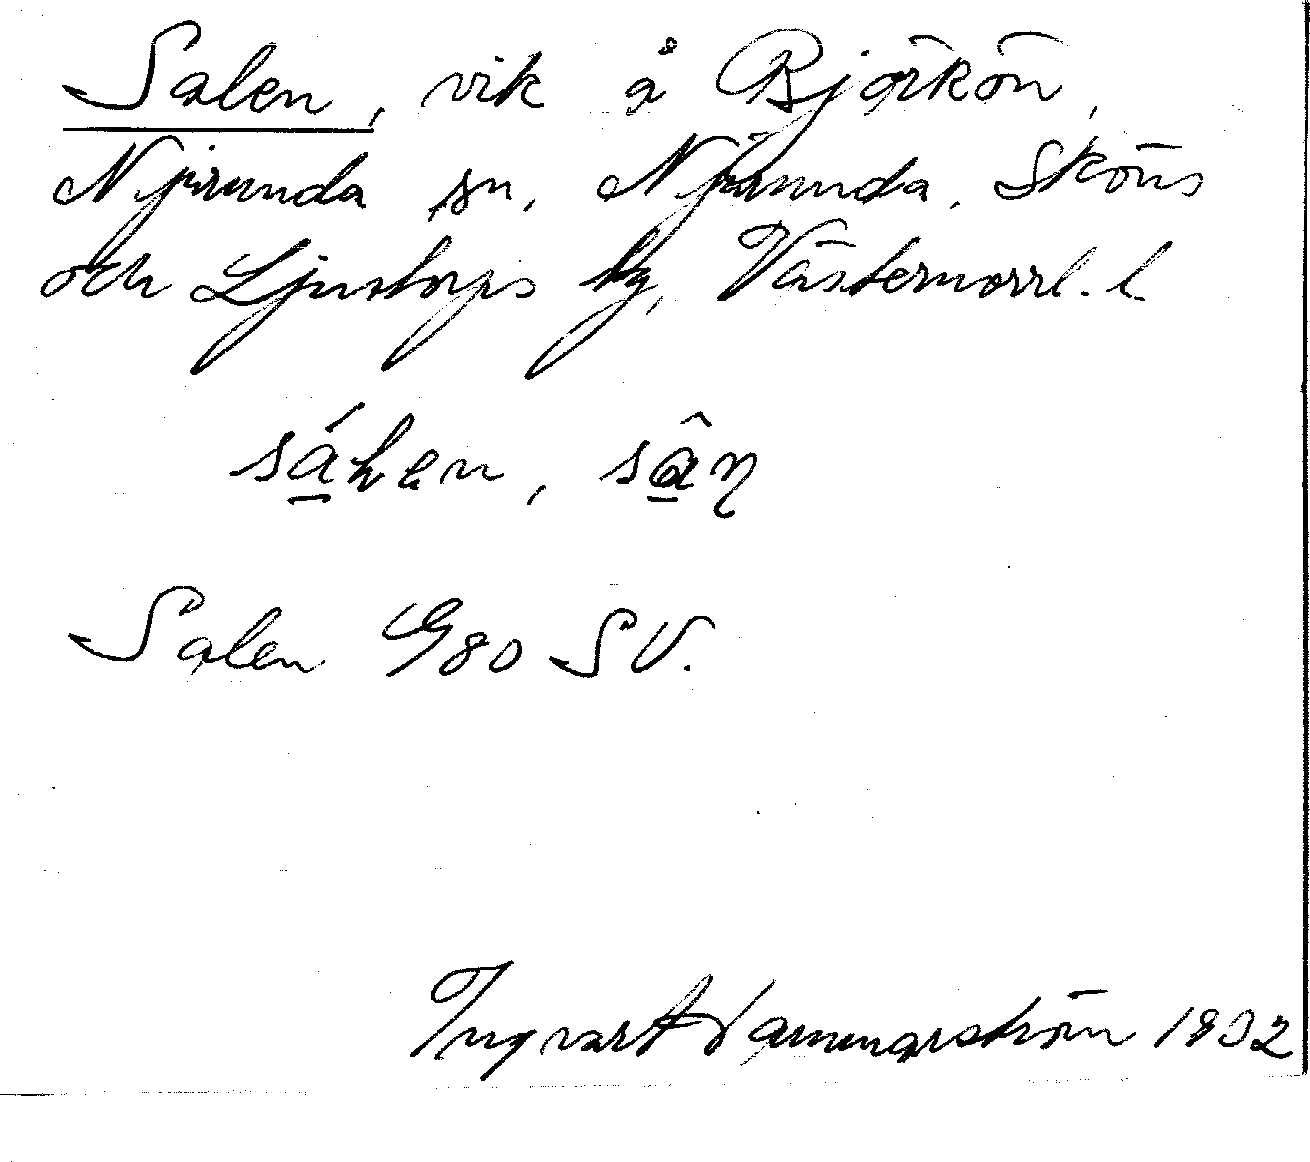 Salen, vik å Björkön,
Njurunda sn, Njurunda, Sköns
och Ljustorps hg, Västernorrl. l.
Salen G80 SV.
Ingvart Hammarström 1932